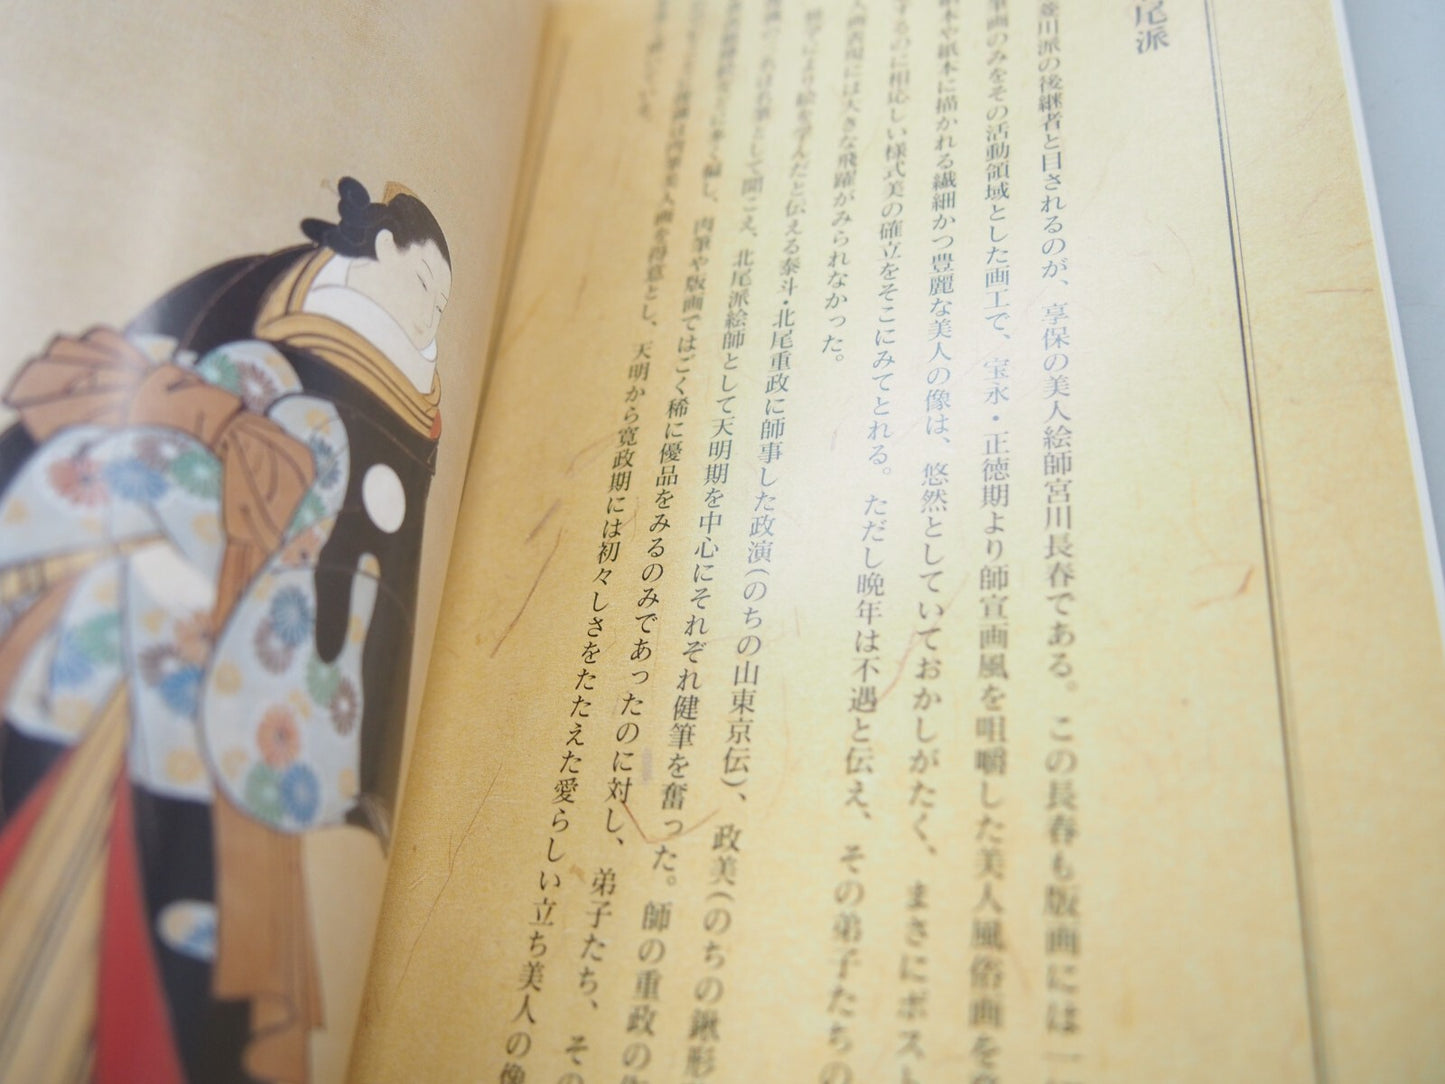 尾派
菱川派の後継者と目されるのが、享保の美人絵師宮川長春である。この長春も版画には一
筆画のみをその活動領域とした画工で、宝永・正徳期より師宣画風を咀嚼した美人風俗画を
絹本や紙本に描かれる繊細かつ豊麗な美人の像は、悠然としていておかしがたく、まさにポスト
するのに相応しい様式美の確立をそこにみてとれる。ただし晩年は不遇と伝え、その弟子たちの
人画表現には大きな飛躍がみられなかった。
により絵を学んだと伝える泰斗・北尾重政に師事した政演(のちの山東京伝)、政美(のちの鍬形
の三名は名筆として聞こえ、北尾派絵師として天明期を中心にそれぞれ健筆を奮った。師の重政の
に多く編し、肉筆や版画ではごく稀に優品をみるのみであったのに対し、弟子たち、その
は肉筆美人画を得意とし、天明から寛政期には初々しさをたたえた愛らしい立ち美人の像